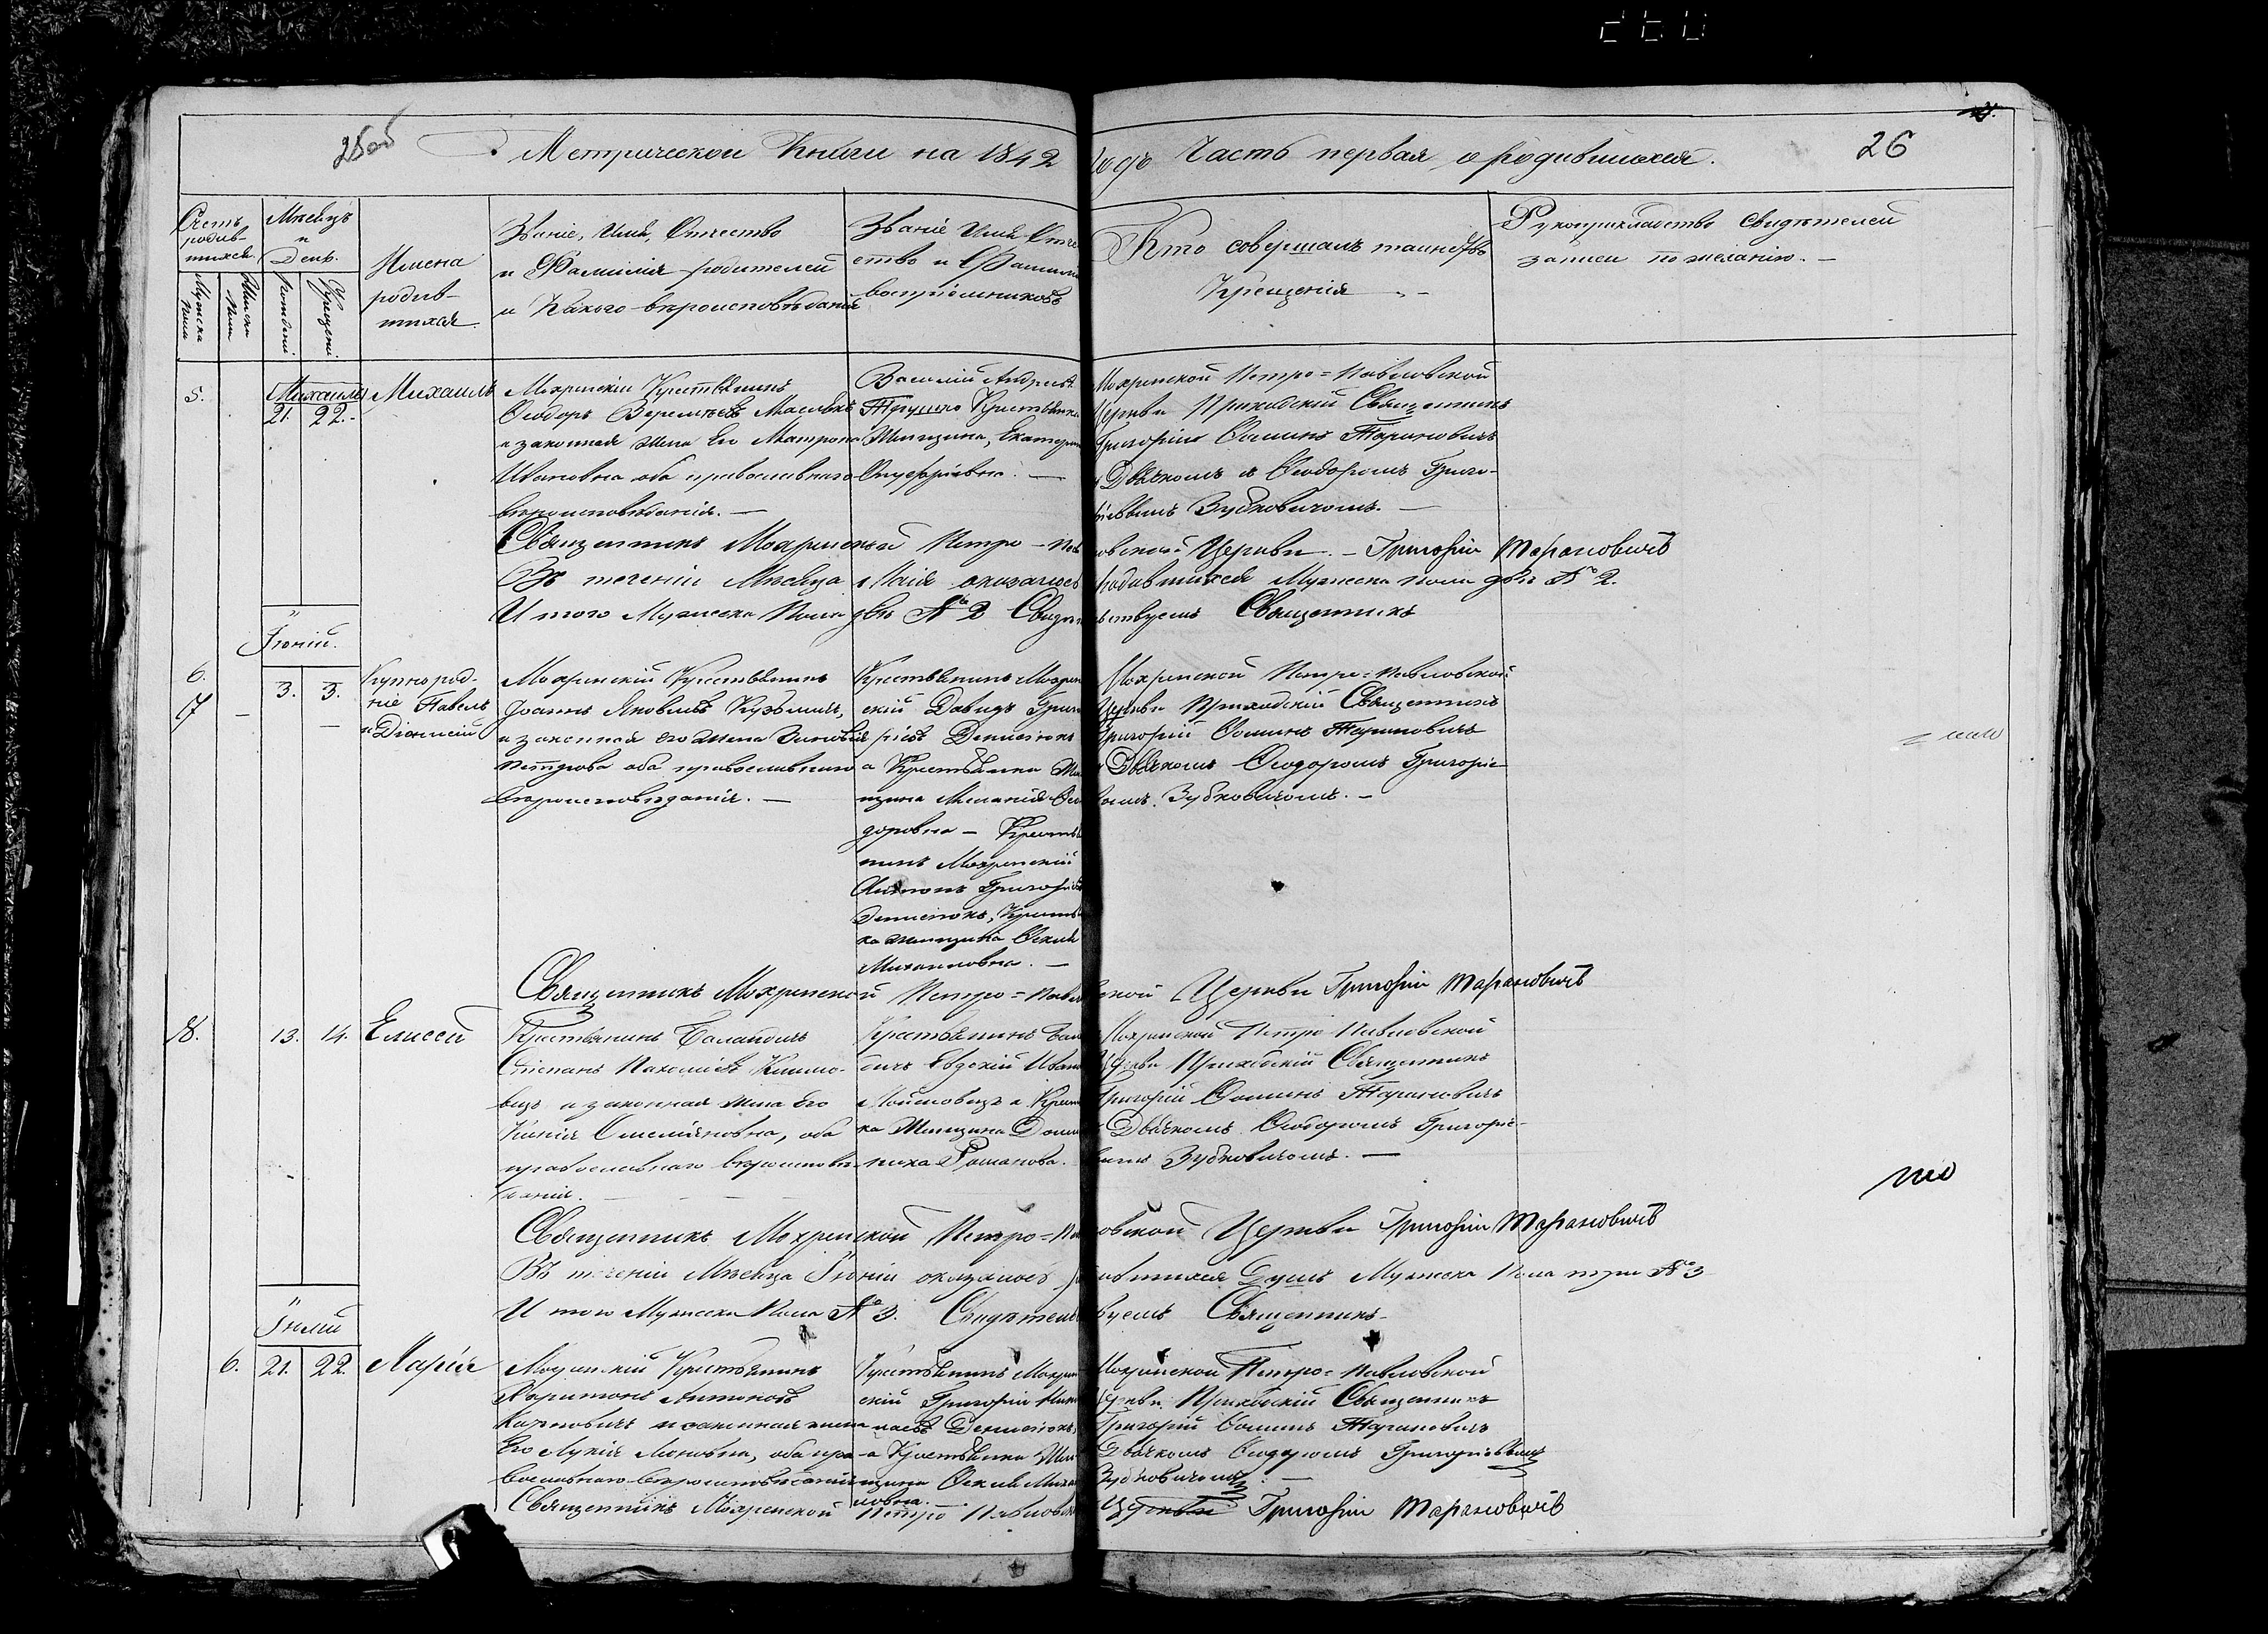 26
Метрической Книги на 1842
Года Часть первая, о родившихся.
Счетъ родив-шихся.
Мужеска пола
Женска пола
Мѣсяцъ и День.
Рожденія
Крещенія
Имена
родив-
шихся.
Званіе, Имя, Отчество
и Фамилія родителей
и Какого вѣроисповѣданія
Званіе Имя Отче
ство и Фамилія
воспріемниковъ
Кто совершалъ таинство
Крещенія
Рукоприкладство свидѣтелей
записи по желанію. —
5.
Михаилъ
21. 22.
Михаилъ
Мохринскій Крестьянинъ
Феодоръ
и законная жена Его Матрона
Ивановна оба православнаго
вѣроисповѣданія. —
Василій Андреевъ
Крестьянка
Женщина, Екатерина
Онуфріевна. —
Мохринской Петро=Павловской
Церкви Приходскій Священникъ
Григорій Фоминъ Тарановичъ
съ Дьячкомъ Феодоромъ Григо-
ріевымъ Зубковичомъ. —
Священникъ Мохринской Петро-Пав
ловской Церкви. — Григорій Тарановичъ
Въ теченіи Мѣсяца Маія оказалось
родившихся Мужеска пола два № 2.
И того Мужеска Пола два № 2 Свидѣ
тельствуемъ Священникъ
Іюній.
6.
7
3. 3.
Павелъ
и Діонисій
Мохринскій Крестьянинъ
Іоаннъ Яковлевъ Кузьмичъ,
и законная его жена Зиновія
Петрова оба православнаго
вѣроисповѣданія. —
Крестьянинъ Мохрин
скій Давидъ Григо
ріевъ Денисюкъ
а Крестьянка Жен
щина Меланія Фео
доровна — Крестья
нинъ Мохринскій
Антонъ Григоріевъ
Денисюкъ, Крестьян
ка женщина
Михаиловна. —
Мохринской Петро=Павловской
Церкви Приходскій Священникъ
Григорій Фоминъ Тарановичъ
съ Дьячкомъ Феодоромъ Григоріе-
вымъ Зубковичомъ. —
Священникъ Мохринской Петро=Павлов
ской Церкви Григорій Тарановичъ
8.
13. 14.
Елисей
Крестьянинъ
Стефанъ Пахоміевъ Климо-
вецъ и законная жена Его
Емеліяновна, оба
православнаго вѣроисповѣ-
данія.
Крестьянинъ
Иванъ
и Крестьян
ка Женщина
Романова.
Мохринской Петро-Павловской
Церкви Приходскій Священникъ
Григорій Фоминъ Тарановичъ
съ Дьячкомъ Феодоромъ Григоріе-
вымъ Зубковичомъ. —
Священникъ Мохринской Петро=Пав
ловской Церкви Григорій Тарановичъ
Въ теченіи Мѣсяца Іюнія оказалось ро
дившихся Душъ Мужеска Пола три № 3
И того Мужеска Пола № 3. Свидѣтель
ствуемъ Священникъ-
Іюлій
6. 21. 22.
Марія
Мохринскій Крестьянинъ
Харитонъ Антоновъ
Карповичъ и законная жена
Его Лукія, оба пра-
вославнаго вѣроисповѣданія
Крестьянинъ Мохрин
скій Григорій
Денисюкъ,
а Крестьянка Жен-
щина
ловна. —
Мохринской Петро=Павловской
Церкви Приходскій Священникъ
Григорій Фоминъ Тарановичъ
съ Дьячкомъ Феодоромъ Григоріевымъ
Зубковичомъ. —
Священникъ Мохринской Петро Павловск
Церкви Григорій Тарановичъ